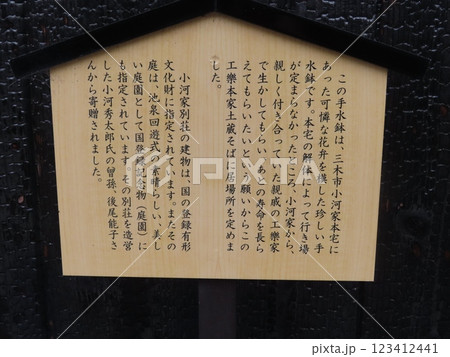 この手水鉢は、三木市小河家本宅に
あった可憐な花弁を模した珍しい手
水鉢です。本宅の解体によって行き場
が定まらなかったところ、小河家から、
親しく付き合っていた親戚の工樂家
で生かしてもらい、あとの寿命を長ら
えてもらいたいという願いからこの
工樂本家土蔵そばに居場所を定めま
した。
小河家別荘の建物は、国の登録有形
文化財に指定されています。またその
庭は、池泉回遊式の素晴らしい、美し
い庭園として国登録記念物(庭園)に
も指定されています。その別荘を造営
した小河秀太郎氏の曾孫、後尾能子さ
んから寄贈されました。
pixta
123412441